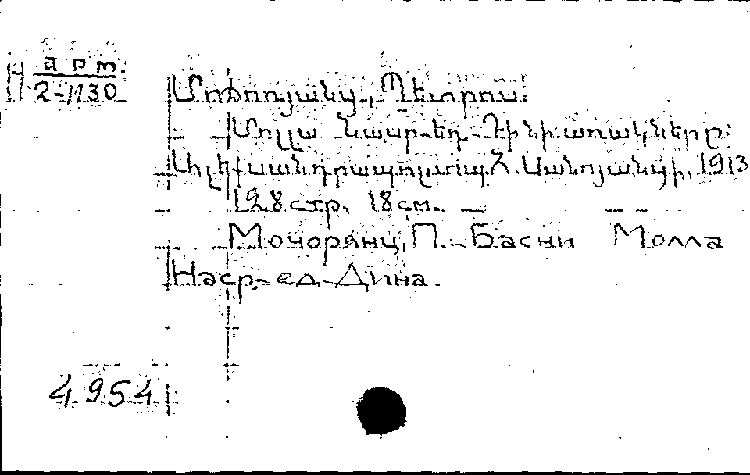 арт.
2-1130
Մոճոռյանց, Պետրոս.
Մոլլա Նասր-եդ-Դինի առակները.
Ալեքսանդրապոլ, տպ. Ա. Մանոյանցի, 1913
128 стр. 18 см.
Мочорянц, П. - Басни Молла
Наср-ед-Дина.
4954